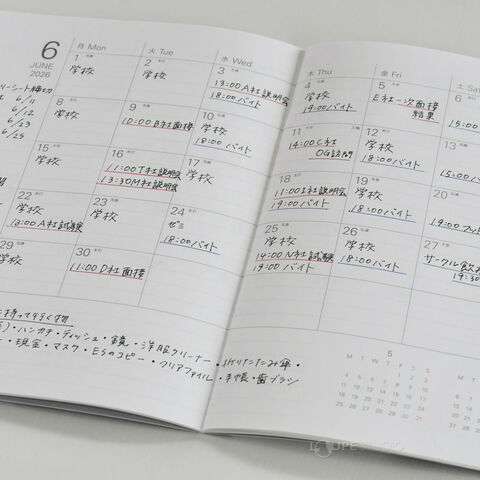 6
JUNE
2026
月 Mon
火 Tue
水 Wed
木 Thu
金 Fri
土 Sa
1
学校
2
学校
3
13:00 A社説明会
18:00 バイト
4
学校
19:00 バイト
5
E社一次面接
結果
6
15:00
リーシート締切
社 6/11
6/12
6/23
6/25
8
学校
9
10:00 B社面接
10
学校
18:00 バイト
11
14:00 C社
OG訪問
12
学校
18:00 バイト
13
15:00 バ
15
学校
16
11:00 T社説明会
13:30 M社説明会
17
学校
18
11:00 I社説明会
19:00 バイト
19
学校
18:00 バイト
20
19:00 フット
22
学校
13:00 A社試験
23
学校
24
ゼミ
18:00 バイト
25
学校
14:00 N社試験
19:00 バイト
26
学校
18:00 バイト
27
サークル飲み
19:30
29
学校
30
11:00 D社面接
持って行く物
・ハンカチ・ティッシュ・鏡・洋服クリーナー・折りたたみ傘・
・現金・マスク・ESのコピー・クリアファイル・手帳・歯ブラシ
5
M T W T F S S
1 2 3
4 5 6 7 8 9 10
11 12 13 14 15 16 17
18 19 20 21 22 23 24
25 26 27 28 29 30 31